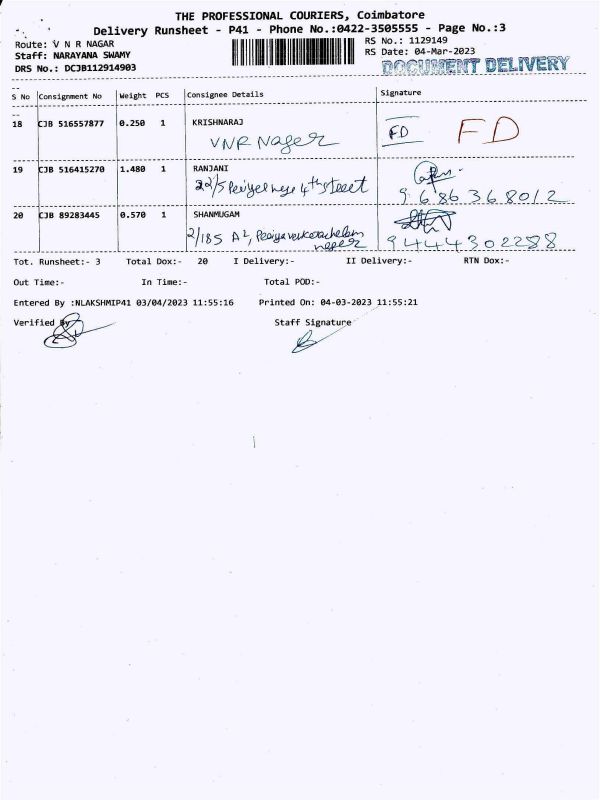 THE PROFESSIONAL COURIERS, Coimbatore
Delivery Runsheet - P41 - Phone No.:0422-3505555 - Page No.:3
Route: V N R NAGAR RS No.: 1129149
Staff: NARAYANA SWAMY RS Date: 04-Mar-2023
DRS No.: DCJB112914903 DOCUMENT DELIVERY
S No Consignment No Weight PCS Consignee Details Signature
18 CJB 516557877 0.250 1 KRISHNARAJ FD FD
VNR Nager
19 CJB 516415270 1.480 1 RANJANI
4th street 9686368012
20 CJB 89283445 0.570 1 SHANMUGAM
2/185 A2, 9444302288
nager
Tot. Runsheet:- 3 Total Dox:- 20 I Delivery:- II Delivery:- RTN Dox:-
Out Time:- In Time:- Total POD:-
Entered By :NLAKSHMIP41 03/04/2023 11:55:16 Printed On: 04-03-2023 11:55:21
Verified By Staff Signature